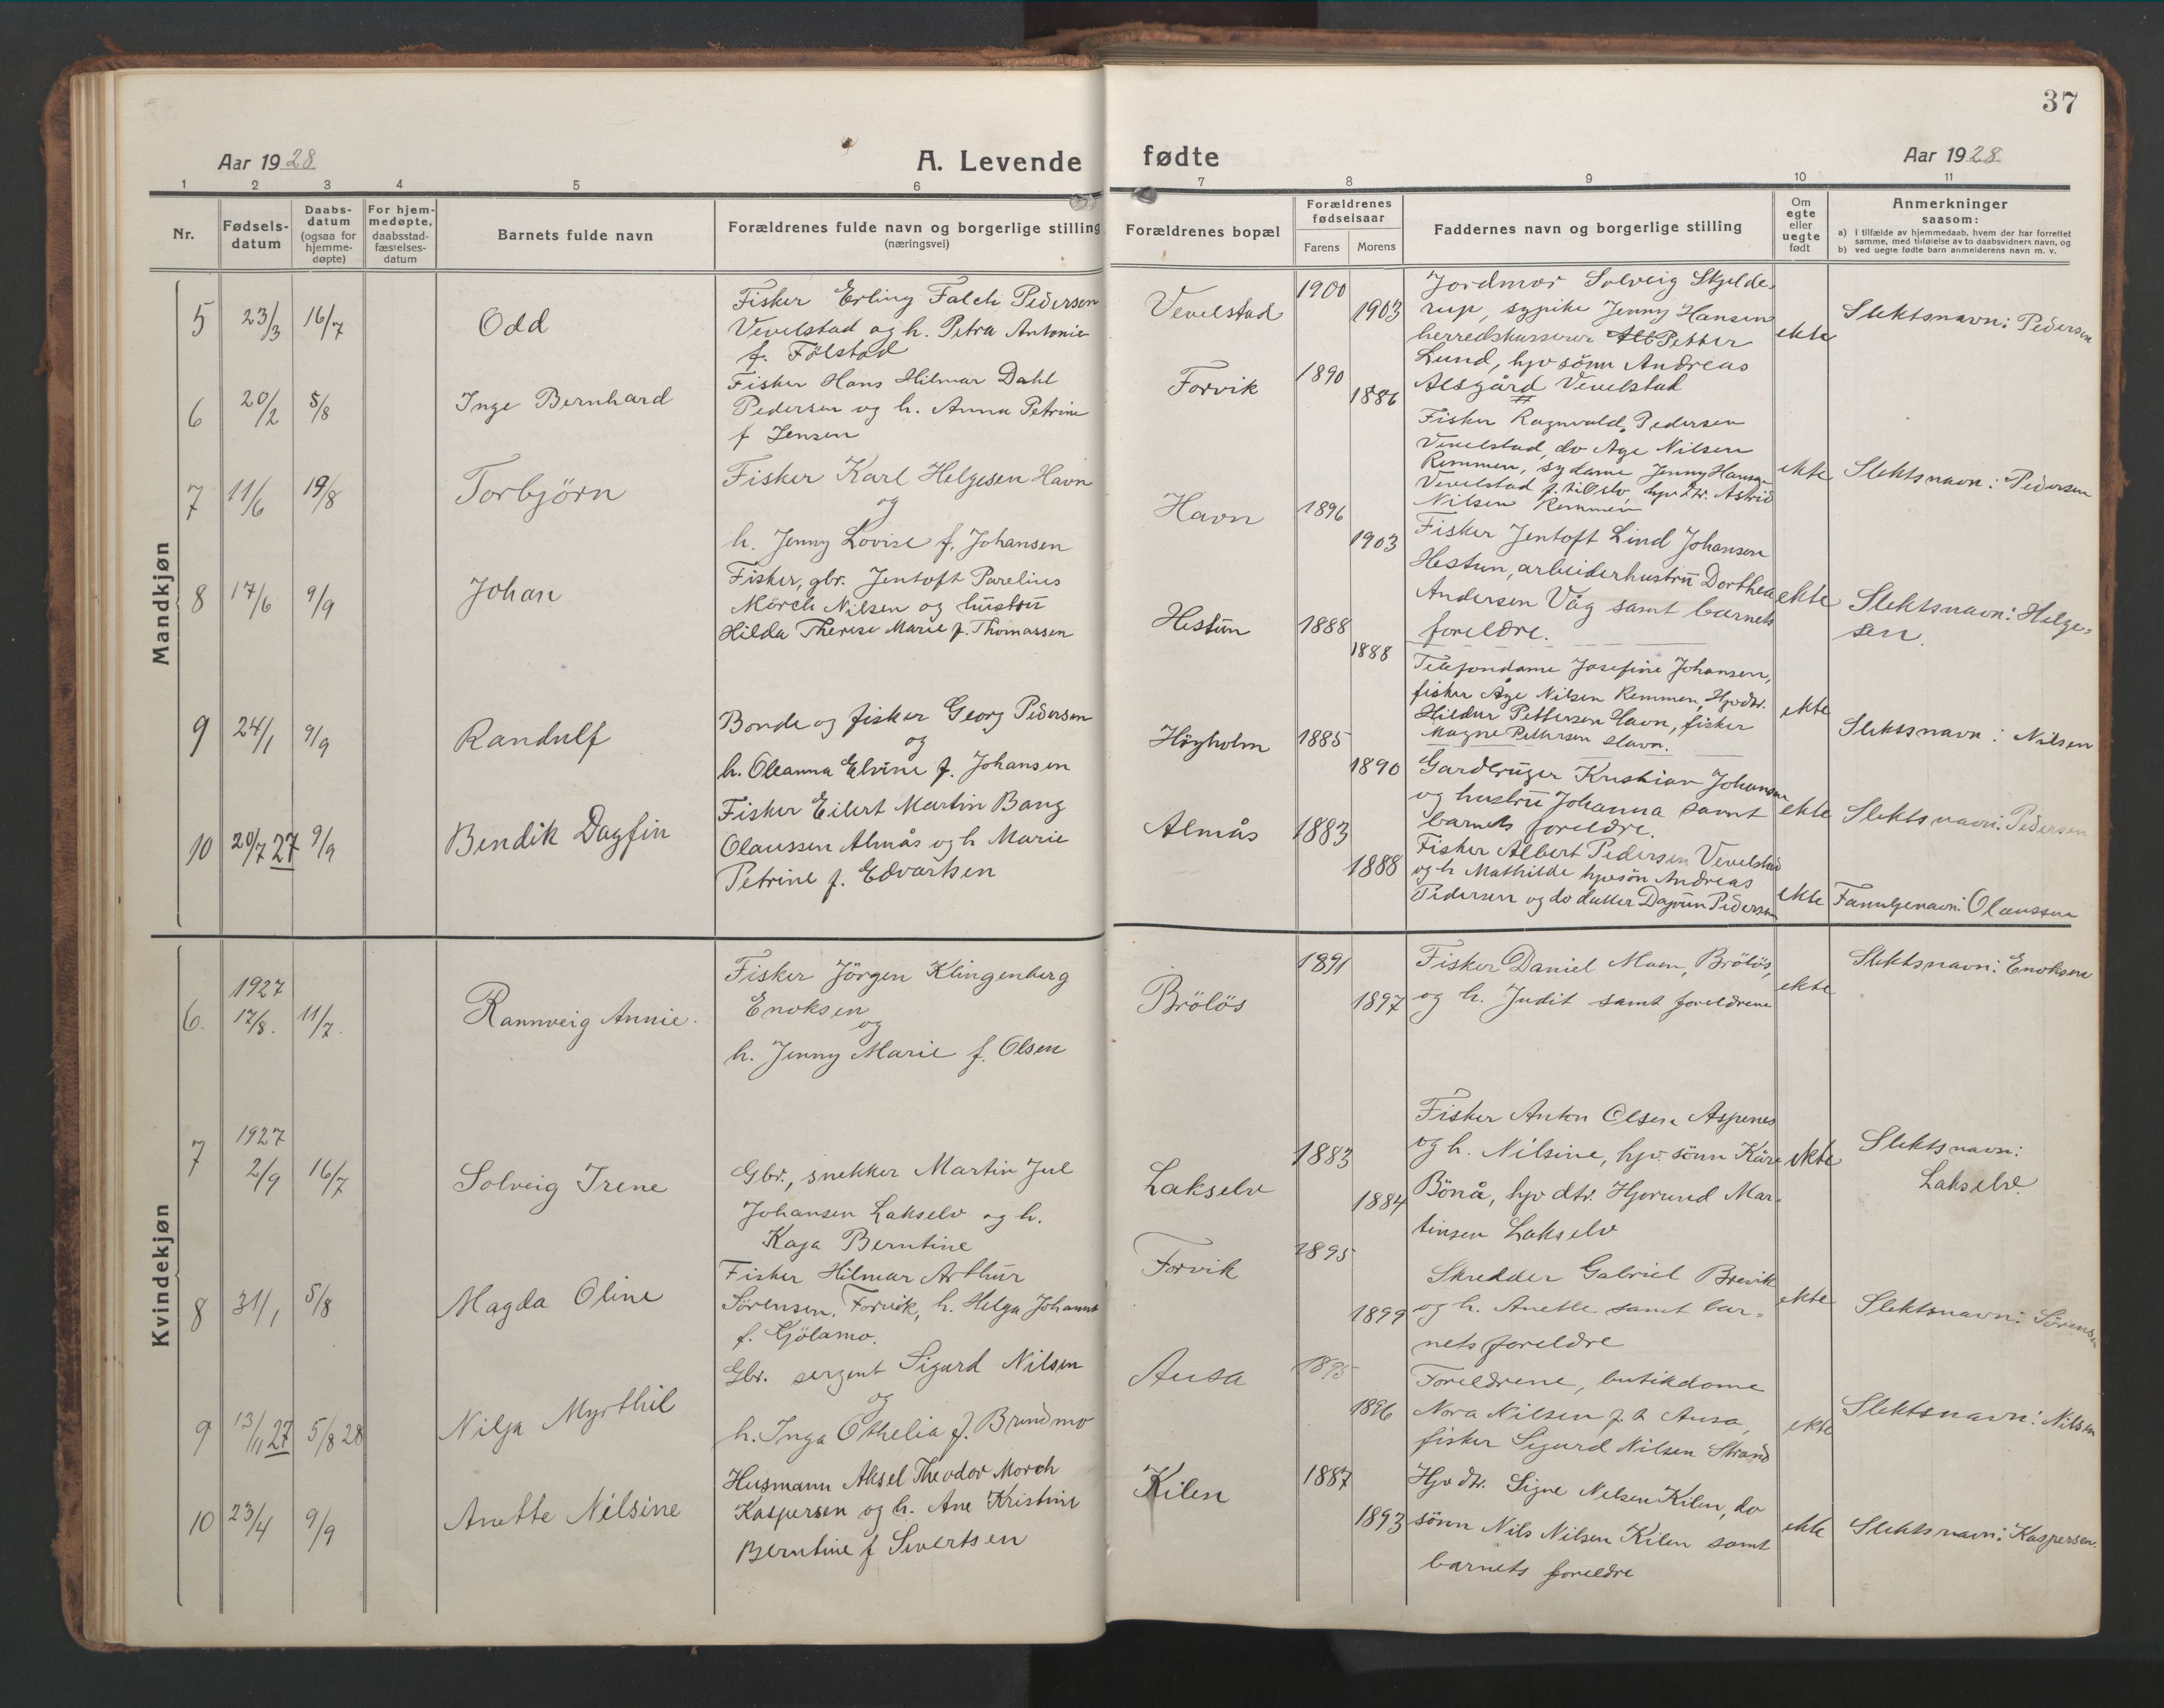 37
Aar 1928
A. Levende fødte
Aar 1928
1 2 3 4 5 6 7 8 9 10 11
Nr.
Fødsels-
datum
Daabs-
datum
(ogsaa for
hjemme-
døpte)
For hjem-
medøpte,
daabsstad-
fæstelses-
datum
Barnets fulde navn
Forældrenes fulde navn og borgerlige stilling
(næringsvei)
Forældrenes bopæl
Forældrenes
fødselsaar
Farens Morens
Faddernes navn og borgerlige stilling
Om
egte
eller
uegte
født
Anmerkninger
saasom:
a) i tilfælde av hjemmedaab, hvem der har forrettet
samme, med tilføielse av to daabsvidners navn, og
b) ved uegte fødte barn anmelderens navn m. v.
Mandkjøn
5 23/3 16/7 Odd
Fisker Erling Falch Pedersen
Vevelstad og h. Petra Antonie
f. Fölstad
Vevelstad 1900 1903
Jordmor Solveig Skjelde-
rup, sypike Jenny Hansen
herredskasserer Petter
Lund, hpv sönn Andreas
Alsgård Vevelstad
ekte
Slektsnavn: Pedersen
6 20/2 5/8 Inge Bernhard
Fisker Hans Hilmar Dahl
Pedersen og h. Anna Petrine
f Jensen
Forvik 1890 1886
Fisker Ragnvald Pedersen
Vevelstad, do Age Nilsen
Remmen, sydame Jenny Hansen
Vevelstad f. til Oslo, hpv dtr. Astrid
Nilsen Remmen
ekte
Slektsnavn: Pedersen
7 11/6 19/8 Torbjörn
Fisker Karl Helgesen Havn
og
h. Jenny Lovise f. Johansen
Havn 1896 1903
Fisker Jentoft Lind Johansen
Hestun, arbeiderhustru Dorthea
Andersen Våg samt barnets
foreldre.
ekte
Slektsnavn: Helge-
sen.
8 17/6 9/9 Johan
Fisker, gbr. Jentoft Parelius
Mörch Nilsen og hustru
Hilda Therese Marie f. Thomassen
Hestun 1888 1888
Telefondame Josefine Johansen,
fisker Åge Nilsen Remmen, Hpv dtr.
Hildur Pettersen Havn, fisker
Magne Pettersen Havn.
ekte
Slektsnavn: Nilsen
9 24/1 9/9 Randulf
Bonde og fisker Georg Pedersen
og
h. Oleanna Elvine f. Johansen
Höyholm 1885 1890
Gardbruger Kristian Johansen
og hustru Johanna samt
barnets foreldre.
ekte
Slektsnavn: Pedersen
10 20/7 27 9/9 Bendik Dagfin
Fisker Eilert Martin Bang
Olaussen Almås og h Marie
Petrine f. Edvartsen
Almås 1883 1888
Fisker Albert Pedersen Vevelstad
og h Mathilde hpv sön Andreas
Pedersen og do datter Dagrun Pedersen
ekte
Familjenavn: Olaussen
Kvindekjøn
6. 1927
17/8. 11/7. Rannveig Annie.
Fisker Jörgen Klingenberg
Enoksen
og
h. Jenny Marie f. Olsen
Brölös 1891 1897
Fisker Daniel Moen, Brölös,
og h. Judit samt foreldrene
ekte
Slektsnavn: Enoksen
7 1927
2/9 16/7 Solveig Irene
Gbr., snekker Martin Jul
Johansen Lakselv og h.
Kaja Berntine
Lakselv 1883 1884
Fisker Anton Olsen Aspenes
og h. Nilsine, hpv. sönn Kåre
Bönå, hpv dtr. Hjörund Mar-
tinsen Lakselv
ekte
Slektsnavn:
Lakselv.
8 31/1 5/8 Magda Oline
Fisker Hilmar Arthur
Sörensen, Forvik, h. Helga Johanne
f. Gjölamo.
Forvik 1895 1899
Skredder Gabriel Brevik
og h. Anette samt bar-
nets foreldre
ekte
Slektsnavn: Sörensen
9 13/11 27 5/8 28 Nilja Myrthil
Gbr. sergent Sigurd Nilsen
og
h. Inga Othelia f. Brundmo
Ausa 1895 1896
Foreldrene, butikdame
Nora Nilsen f. t. Ausa,
fisker Sigurd Nilsen Strand
ekte
Slektsnavn: Nilsen
10 23/4 9/9 Anette Nilsine
Husmann Aksel Theodor Morch
Kaspersen og h. Ane Kristine
Berntine f Sivertsen
Kilen 1887 1893
Hpv dtr. Signe Nilsen Kilen, do
sönn Nils Nilsen Kilen samt
barnets foreldre
ekte
Slektsnavn: Kaspersen.